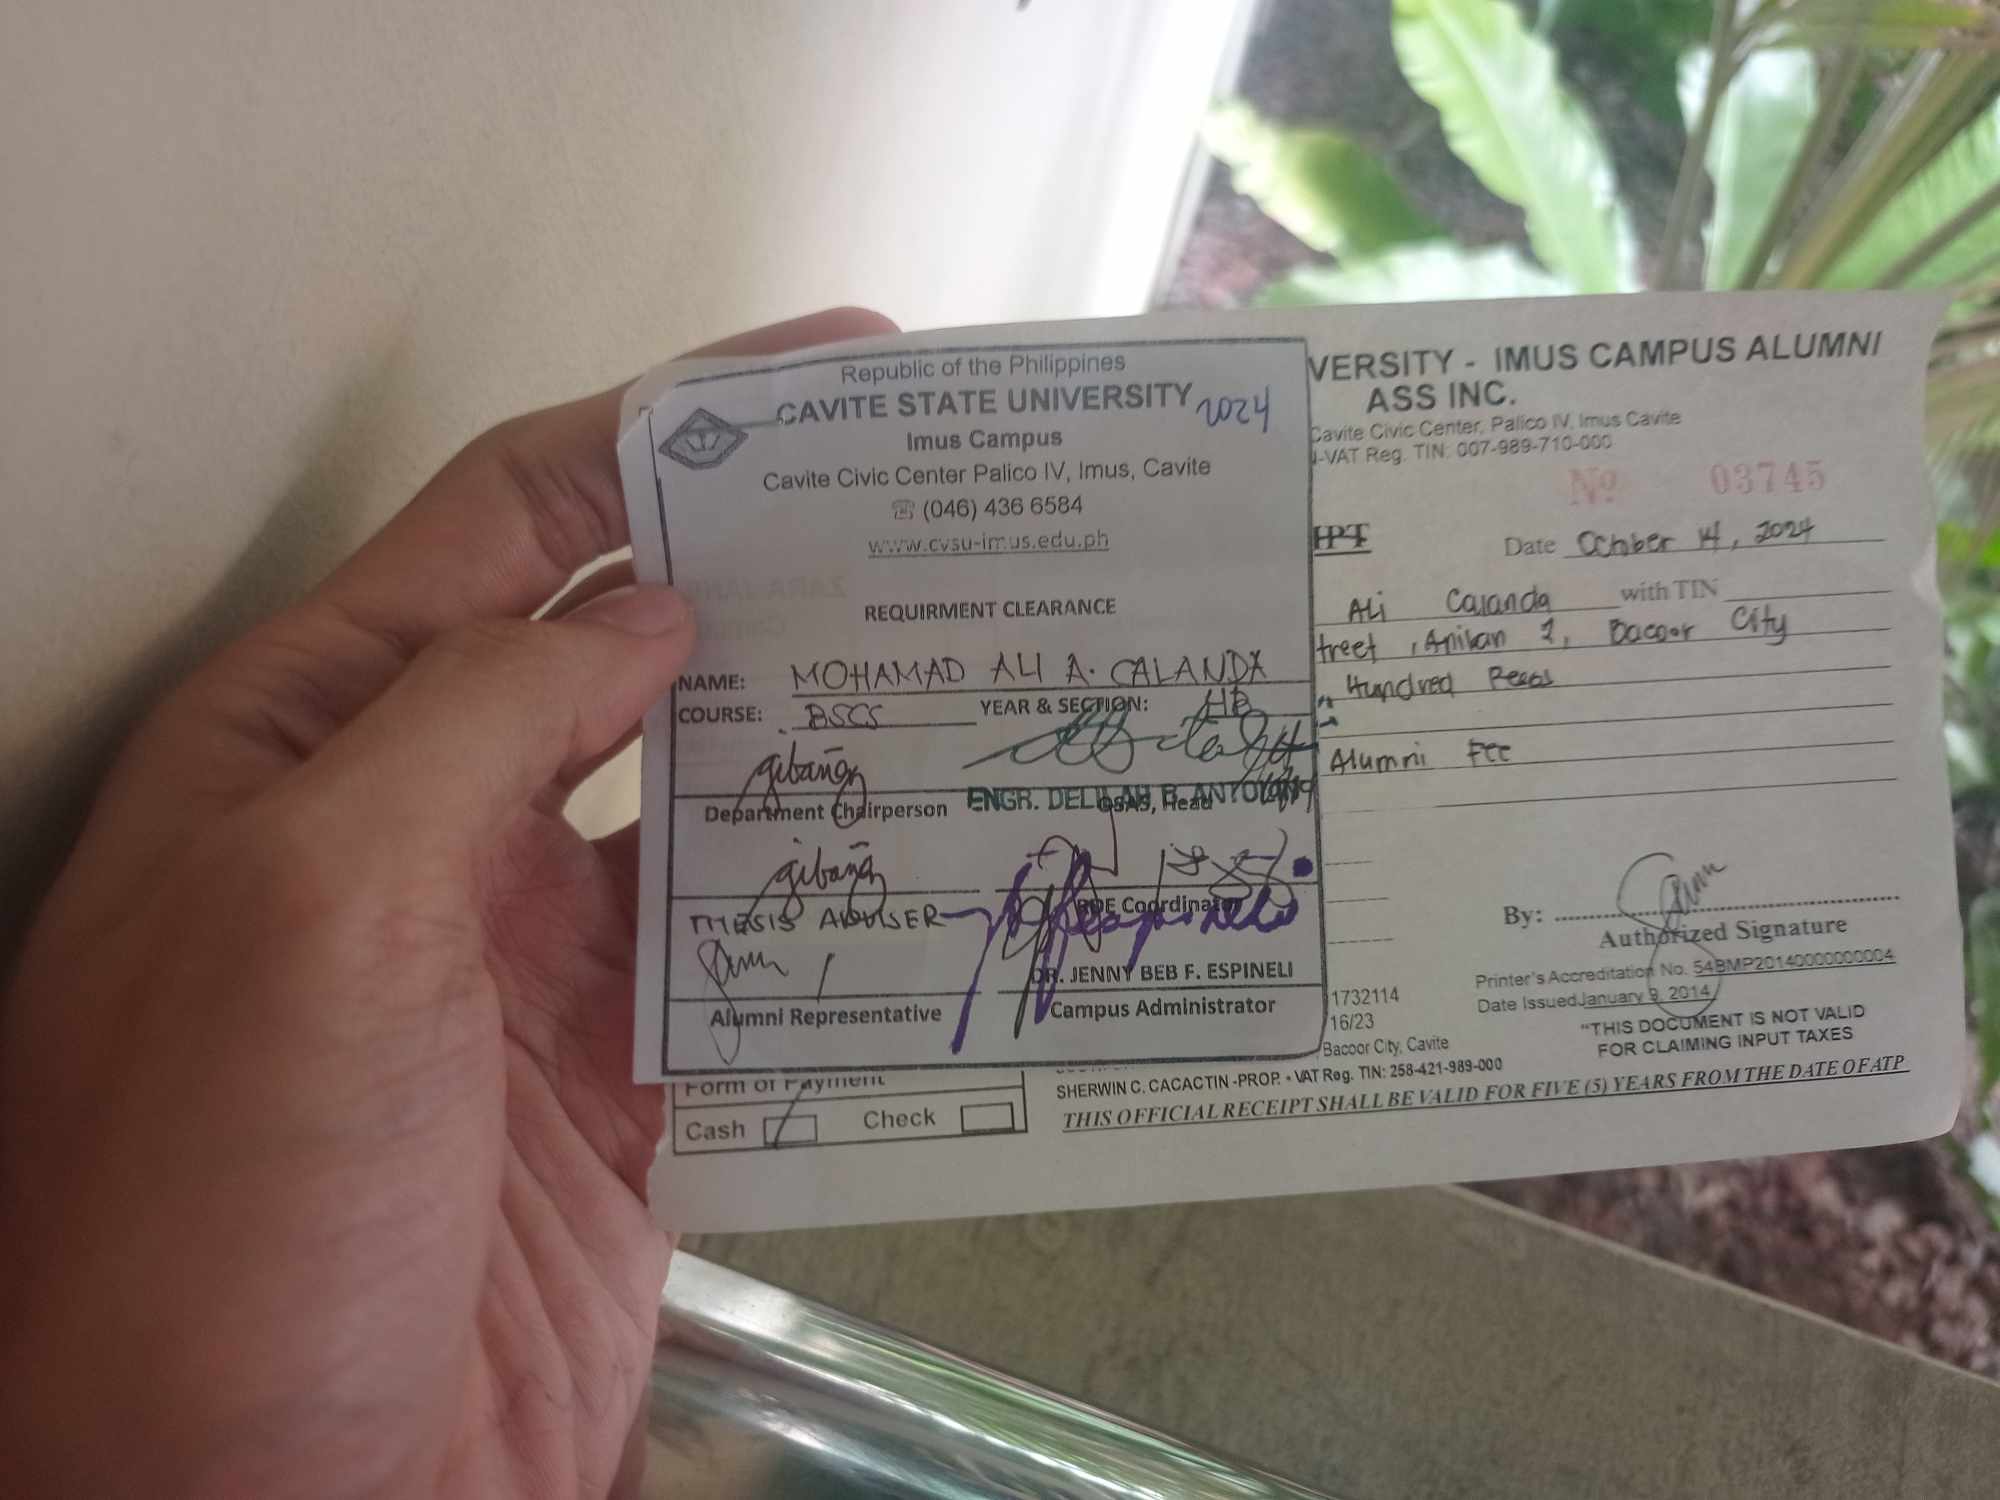 Republic of the Philippines
CAVITE STATE UNIVERSITY 2024
Imus Campus
Cavite Civic Center Palico IV, Imus, Cavite
☏ (046) 436 6584
www.cvsu-imus.edu.ph
REQUIRMENT CLEARANCE
NAME: MOHAMAD ALI A. CALANDA
COURSE: BSCS YEAR & SECTION: 4B
Department Chairperson ENGR. DELILAH R. ANTOLING OSAS, Head
THESIS ADVISER RDE Coordinator
DR. JENNY BEB F. ESPINELI
Alumni Representative Campus Administrator
VERSITY - IMUS CAMPUS ALUMNI
ASS INC.
Cavite Civic Center, Palico IV, Imus Cavite
-VAT Reg. TIN: 007-989-710-000
Nº 03745
IPT
Date October 14, 2024
Ali Calanda with TIN
treet , Aniban 2, Bacoor City
Hundred Pesos
Alumni Fee
By:
Authorized Signature
Printer's Accreditation No. 54BMP20140000000004
Date Issued January 9, 2014
1732114
16/23
"THIS DOCUMENT IS NOT VALID
FOR CLAIMING INPUT TAXES
Bacoor City, Cavite
SHERWIN C. CACACTIN -PROP. • VAT Reg. TIN: 258-421-989-000
THIS OFFICIAL RECEIPT SHALL BE VALID FOR FIVE (5) YEARS FROM THE DATE OF ATP
Form of Payment
Cash Check